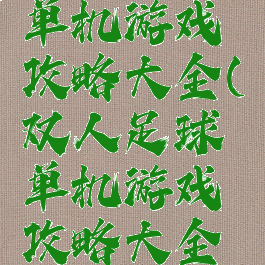 单机游戏
攻略大全(
双人足球
单机游戏
攻略大全